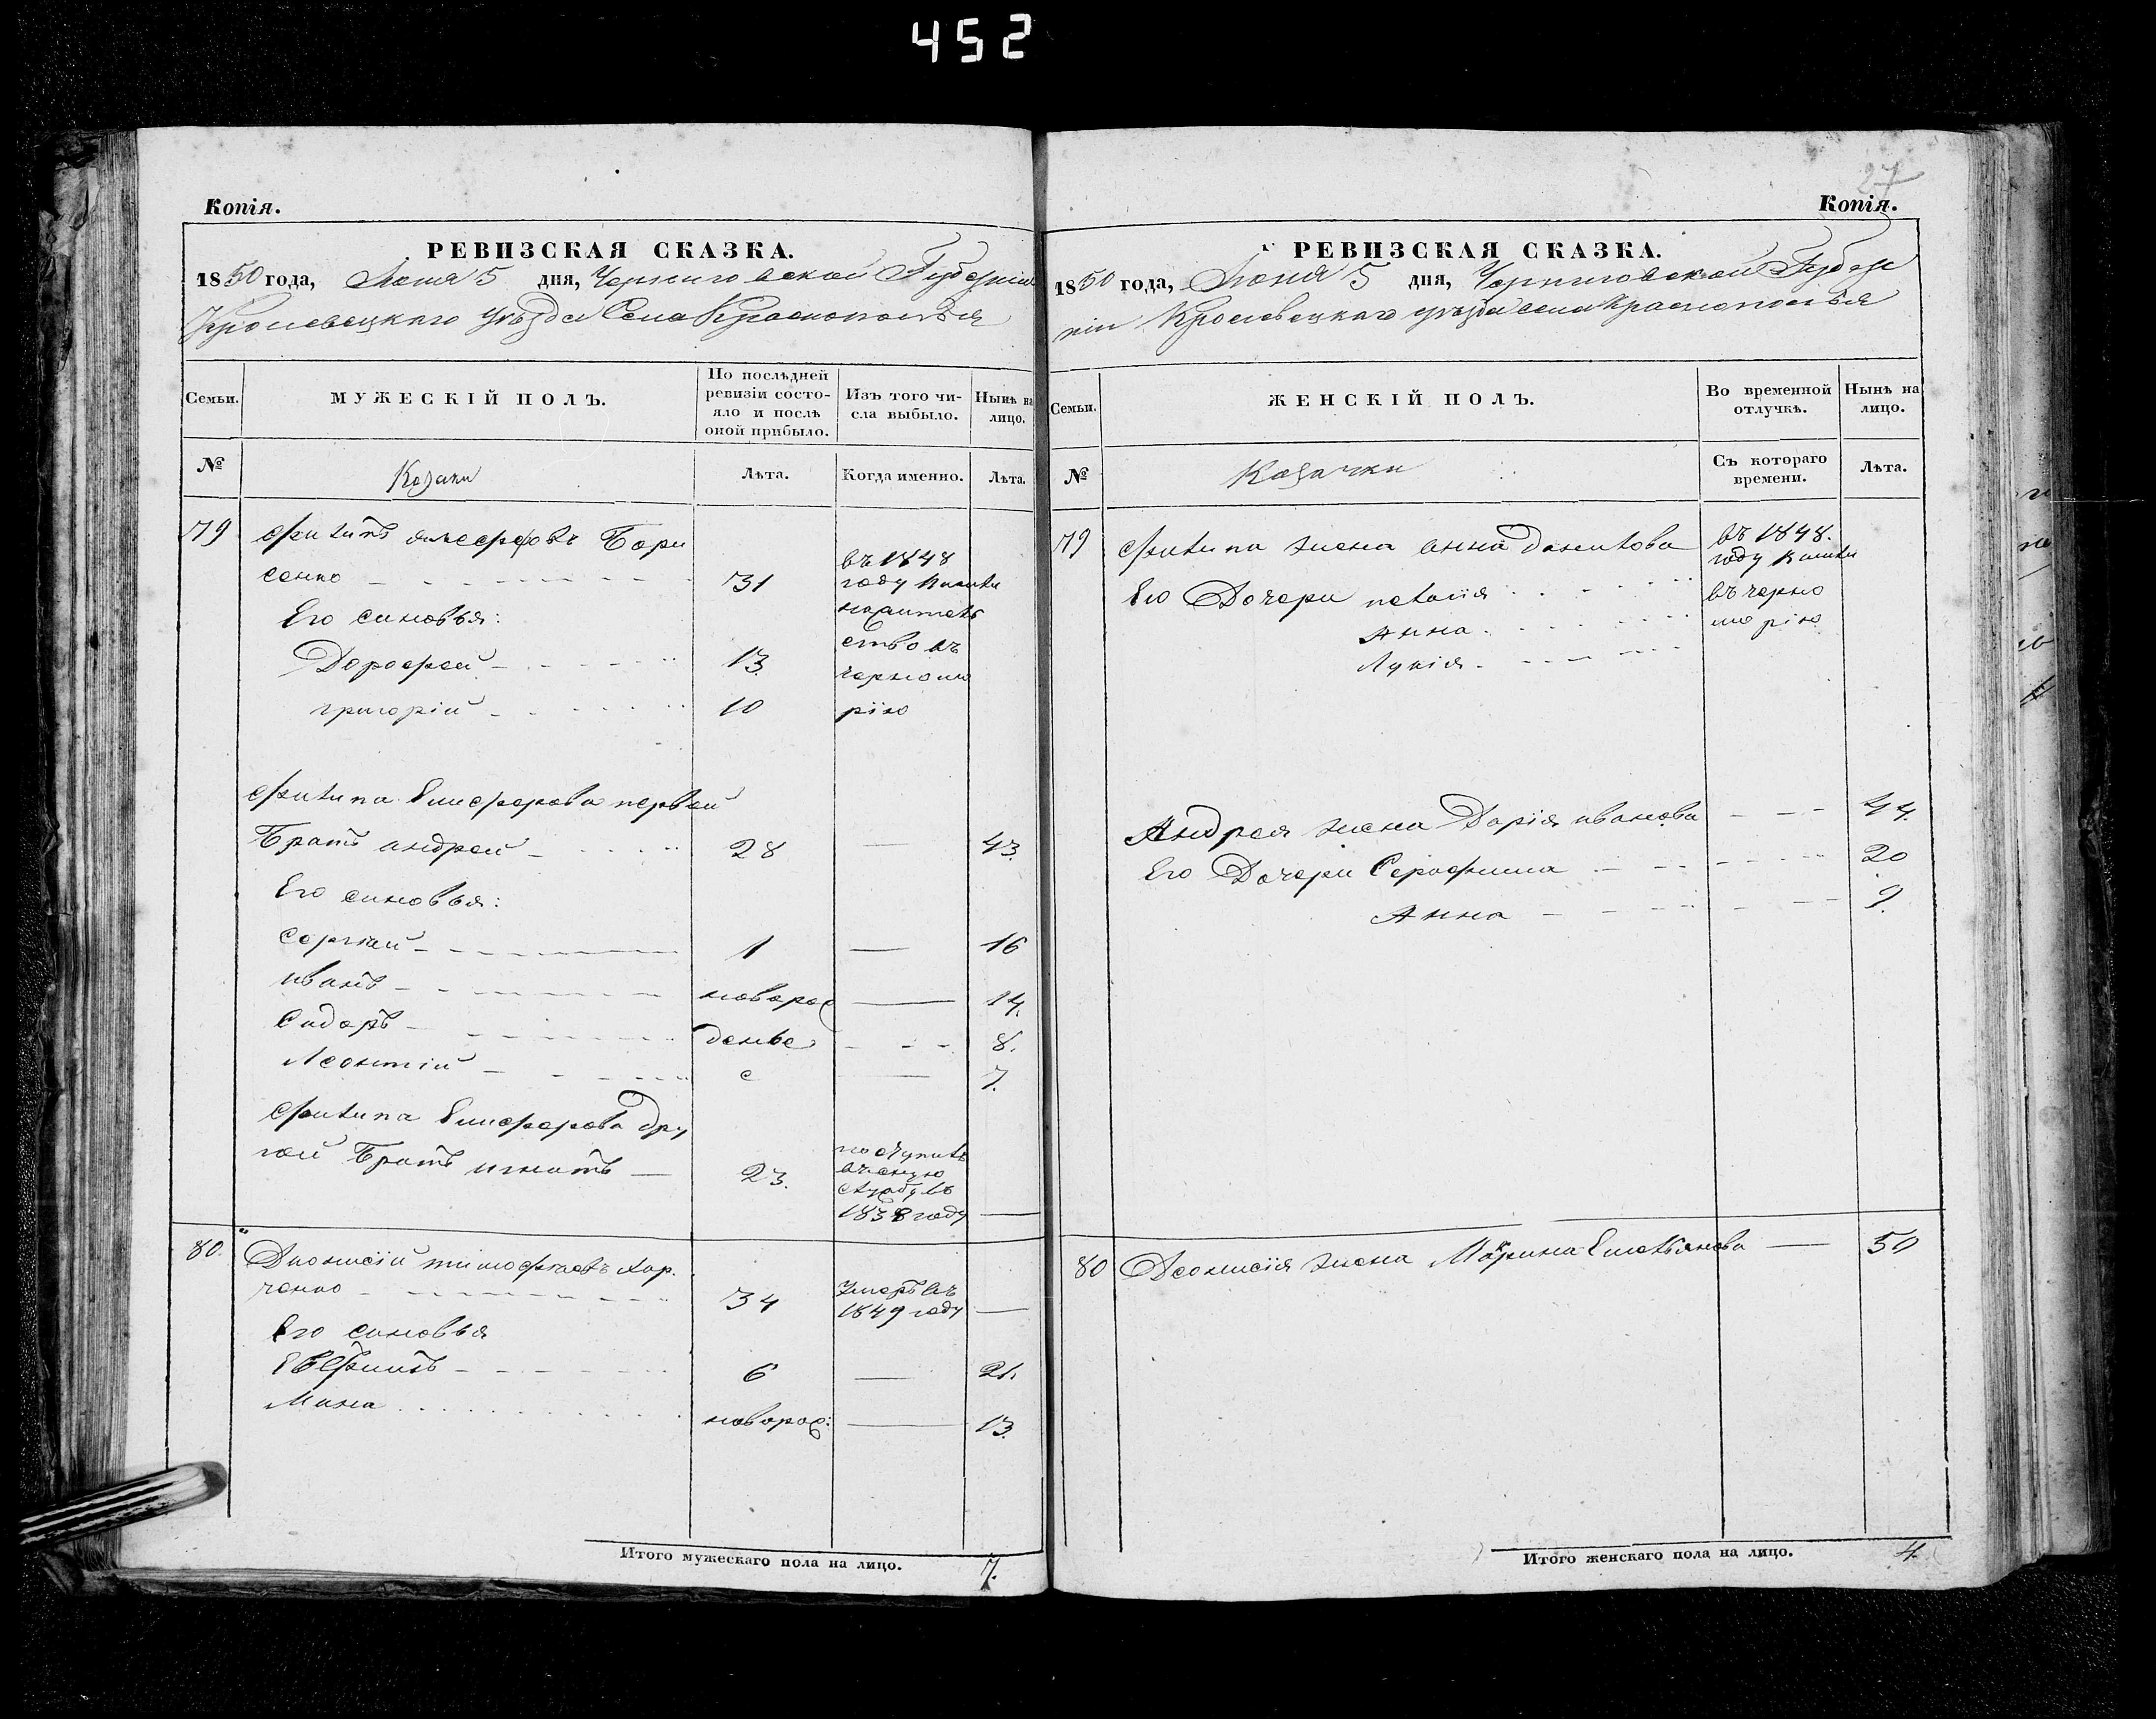 452
Копія.
РЕВИЗСКАЯ СКАЗКА.
1850 года, Июня 5 дня, Черниговской Губерніи
Кролевецкаго уѣзда Села Краснополья
Семьи.
МУЖЕСКІЙ ПОЛЪ.
По послѣдней ревизіи состояло и послѣ оной прибыло.
Изъ того числа выбыло.
Нынѣ на лицо.
№
Козаки
Лѣта.
Когда именно.
Лѣта.
79 Филипъ Борисенко 31
въ 1848 году
Его синовья:
Дорофей 13.
григорій 10
черноморію
Филипа Епиферова первой
Братъ андрей 28 — 43.
Его синовья:
Сергѣй 1 — 16
иванъ новорож — 14.
Сидоръ денне 8.
Леонтій е — 7.
Филипа Епиферова дру
гой Братъ игнатъ — 23.
въ
1838 году —
80. Дионисій тимофѣевъ Хар
ченко 34
Умеръ въ 1849 году —
Его синовья
6 — 21.
Мина новорож: — 13.
Итого мужескаго пола на лицо. 7.
27
Копія.
РЕВИЗСКАЯ СКАЗКА.
1850 года, Июня 5 дня, Черниговской Губер
ніи Кролевецкаго уѣзда села Краснополья
Семьи.
ЖЕНСКІЙ ПОЛЪ.
Во временной отлучкѣ.
Нынѣ на лицо.
№
Козачки
Съ котораго времени.
Лѣта.
79 Филипа жена анна Данилова
въ 1848. году
Его Дочери
въ черно
Анна
морію
Лукія
Андрея жена Дарія иванова — 44.
Его Дочери Серафима 20
Анна 9.
80 Деонисія жена Марина Емельянова — 50
Итого женскаго пола на лицо. 4.